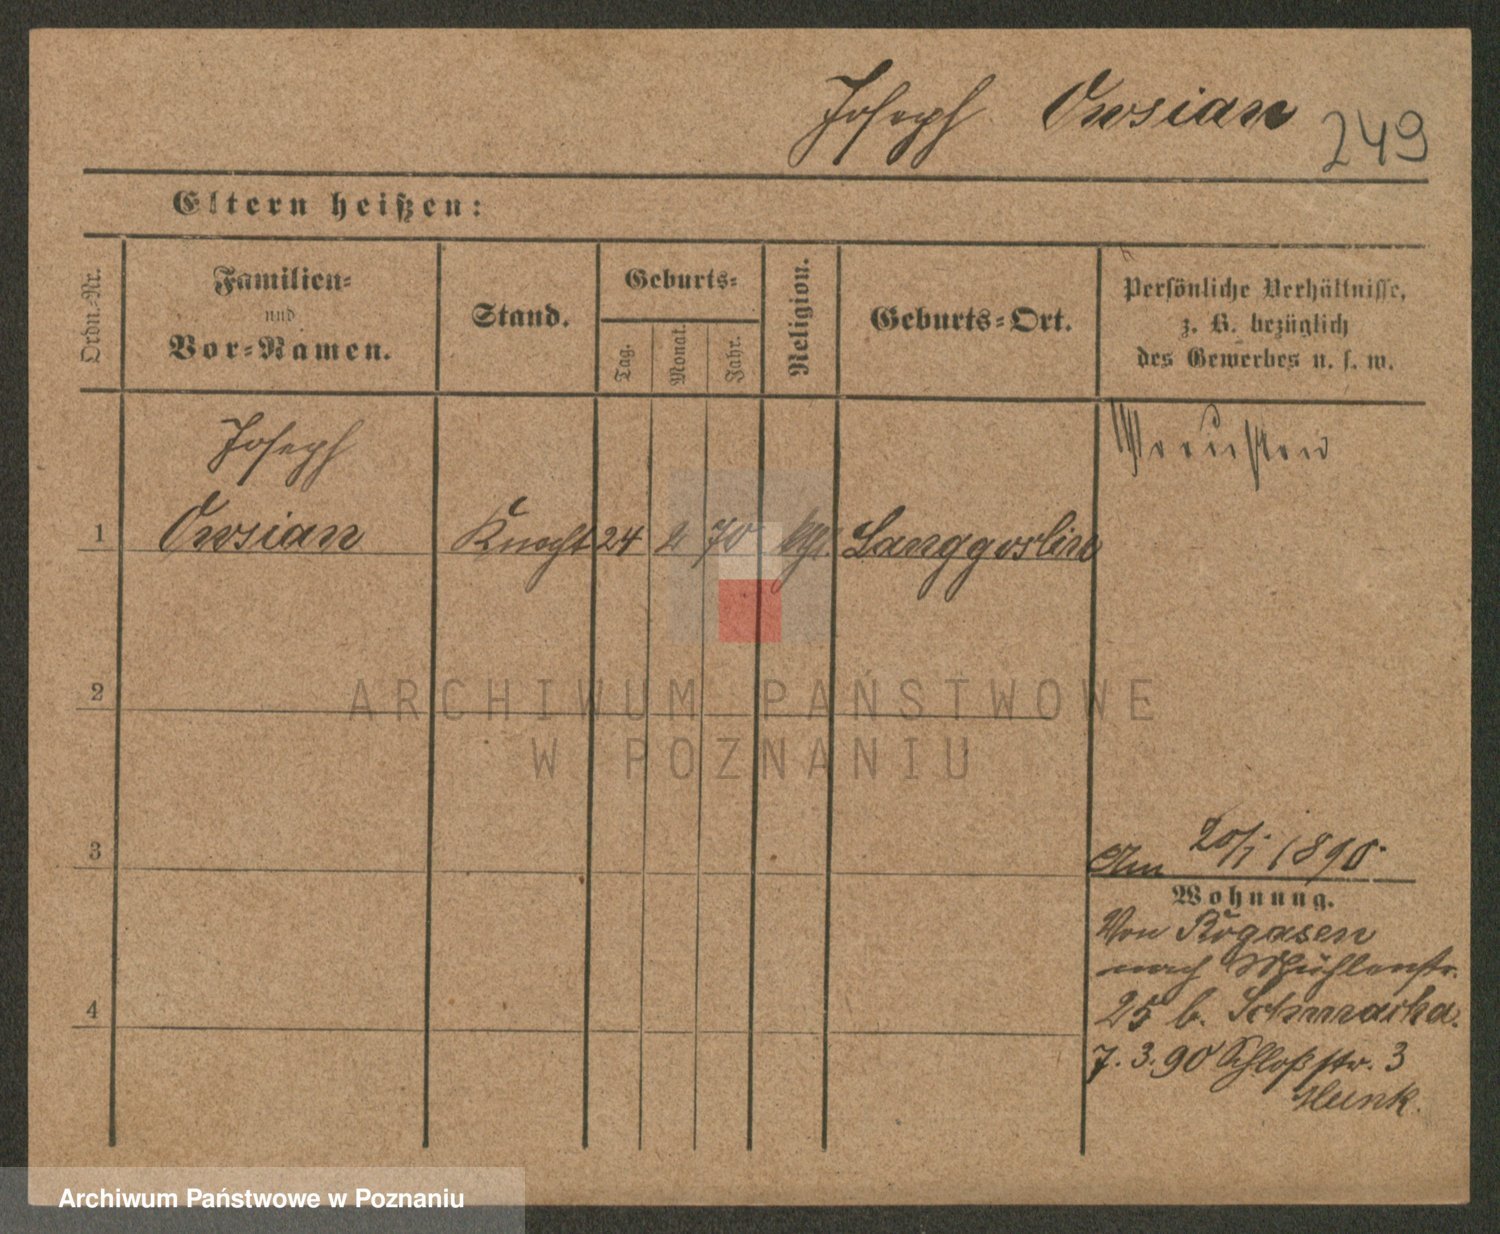 Joseph Owsian 249
Eltern heißen:
Ordn.-Nr.
Familien-
und
Vor-Namen.
Stand.
Geburts-
Tag.
Monat.
Jahr.
Religion.
Geburts-Ort.
Persönliche Verhältnisse,
z. B. bezüglich
des Gewerbes u. s. w.
Joseph
Preußen
1 Owsian Knecht 24 2 70 kth. Langgoslin
2
3
4
Am 20/1 1890.
Wohnung.
Von Rogasen
nach Mühlenstr.
25 b. Schmaika.
7. 3. 90 Schloßstr. 3
Munk.
ARCHIWUM PAŃSTWOWE
W POZNANIU
Archiwum Państwowe w Poznaniu